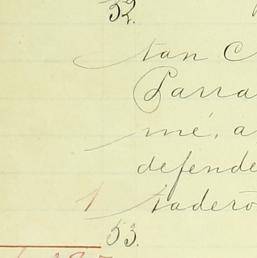 52.
tan C
Parra
mé, a
defende
1 tadero
53.